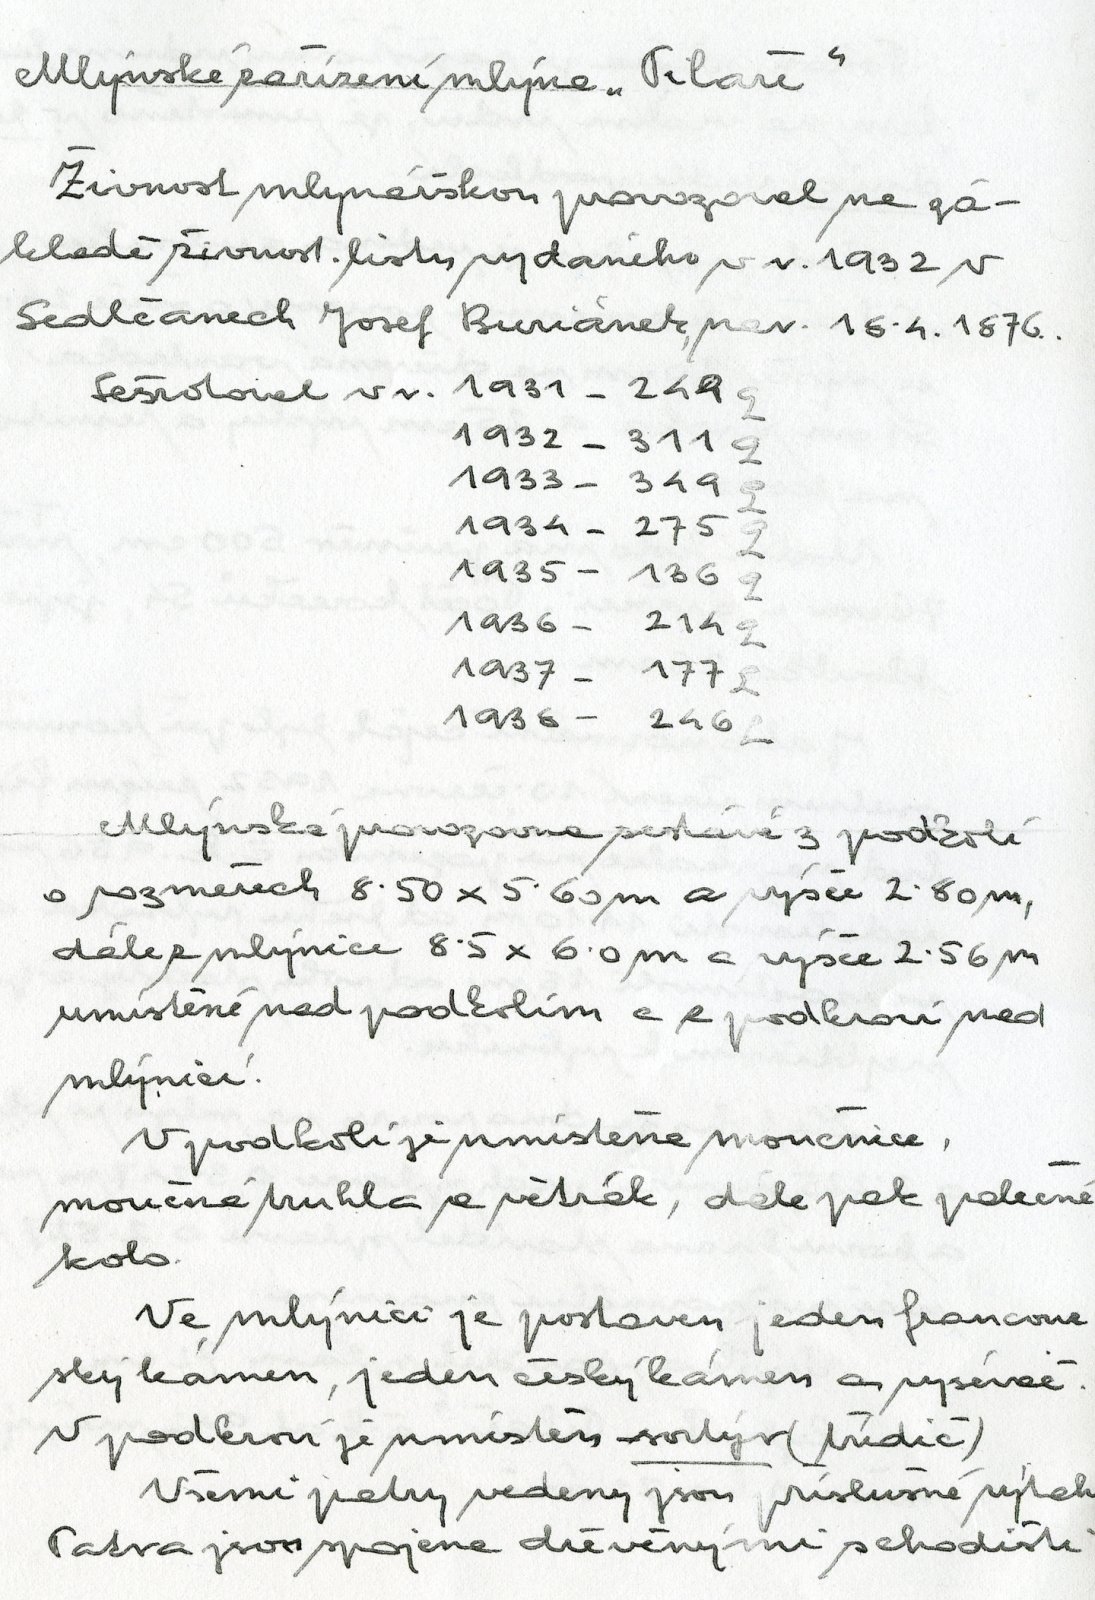 Mlýnské zařízení mlýna „Pilař“
Živnost mlynářskou provozoval na zá-
kladě živnost. listu vydaného v r. 1932 v
Sedlčanech Josef Buriánek, nar. 18.4. 1876.
Sešrotoval v r. 1931 – 249 q
1932 – 311 q
1933 – 349 q
1934 – 275 q
1935 – 136 q
1936 – 214 q
1937 – 177 q
1938 – 246 q
Mlýnská provozovna sestává z podkolí
o rozměrech 8.50 x 5.60 m a výšce 2.80 m,
dále z mlýnice 8.5 x 6.0 m a výšce 2.56 m
umístěné nad podkolím a z podkroví nad
mlýnicí.
V podkolí je umístěna moučnice,
moučná truhla a větrák, dále pak palečné
kolo.
Ve mlýnici je postaven jeden francouz
ský kámen, jeden český kámen a vysévač.
V podkroví je umístěn sortýr (třídič)
Všemi patry vedeny jsou příslušné výtah
Patra jsou spojena dřevěnými schodišti